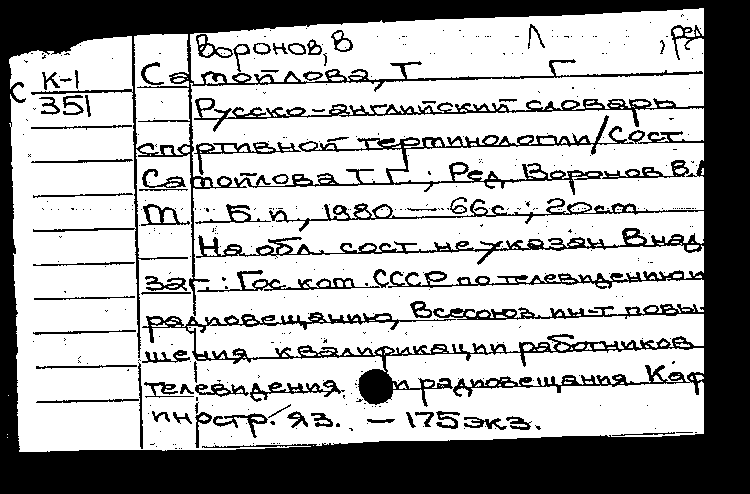 Воронов, В Л , ред
С К-1 Самойлова, Т Г
351 Русско-английский словарь
спортивной терминологии/Сост
Самойлова Т.Г.; Ред Воронов В.Л
М.: Б.и, 1980 — 66с.; 20см
На обл. сост не указан В над-
заг: Гос. ком. СССР по телевидению и
радиовещанию, Всесоюз. ин-т повы-
шения квалификации работников
телевидения и радиовещания Каф
иностр. яз. — 175 экз.